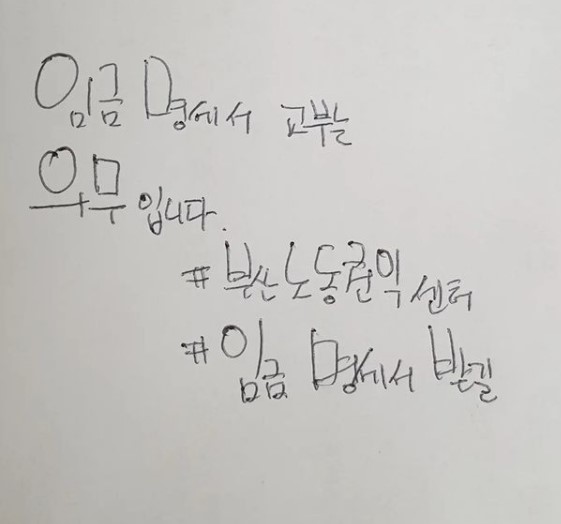 임금 명세서 교부는
의무입니다.
#부산노동권익센터
#임금 명세서 받길